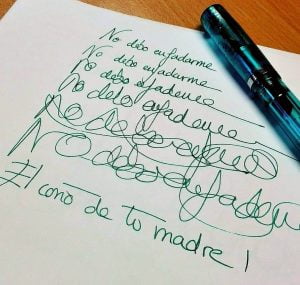 No debo enfadarme
No debo enfadarme
No debo enfadarme
No debo enfadarme
No debo enfadarme
No debo enfadarme
El coño de tu madre!